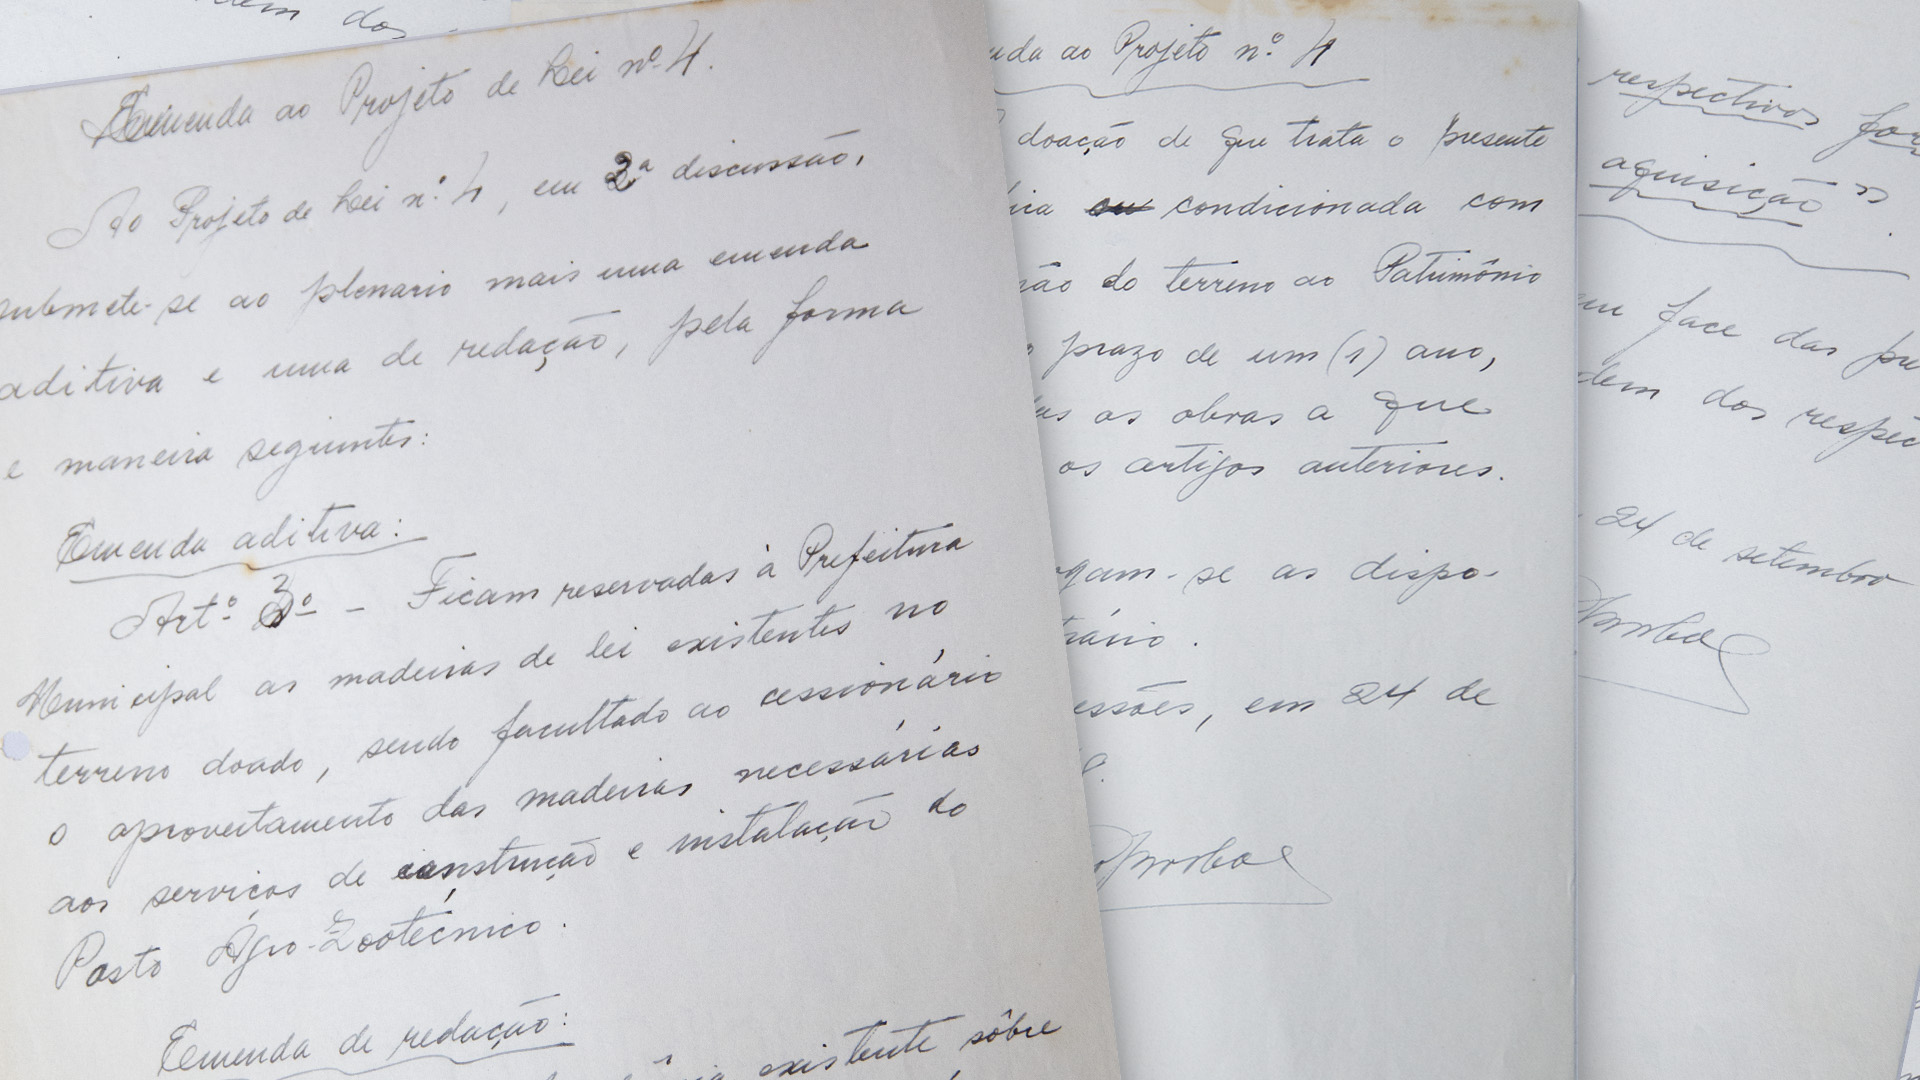 dem dos
Emenda ao Projeto de Lei nº 4.
Ao Projeto de Lei nº 4, em 3ª discussão,
submete-se ao plenario mais uma emenda
aditiva e uma de redação, pela forma
e maneira seguintes:
Emenda aditiva:
Artº 3º - Ficam reservadas à Prefeitura
Municipal as madeiras de lei existentes no
terreno doado, sendo facultado ao cessionário
o aproveitamento das madeiras necessárias
aos serviços de construção e instalação do
Posto Agro-Zootécnico.
Emenda de redação:
existente sôbre
nda ao Projeto nº 4
doação de que trata o presente
ica condicionada com
são do terreno ao Patrimônio
o prazo de um (1) ano,
das as obras a que
os artigos anteriores.
ogam-se as dispo-
trário.
essões, em 24 de
respectivos for
aquisição"
em face das pu
dem dos respec
24 de setembro